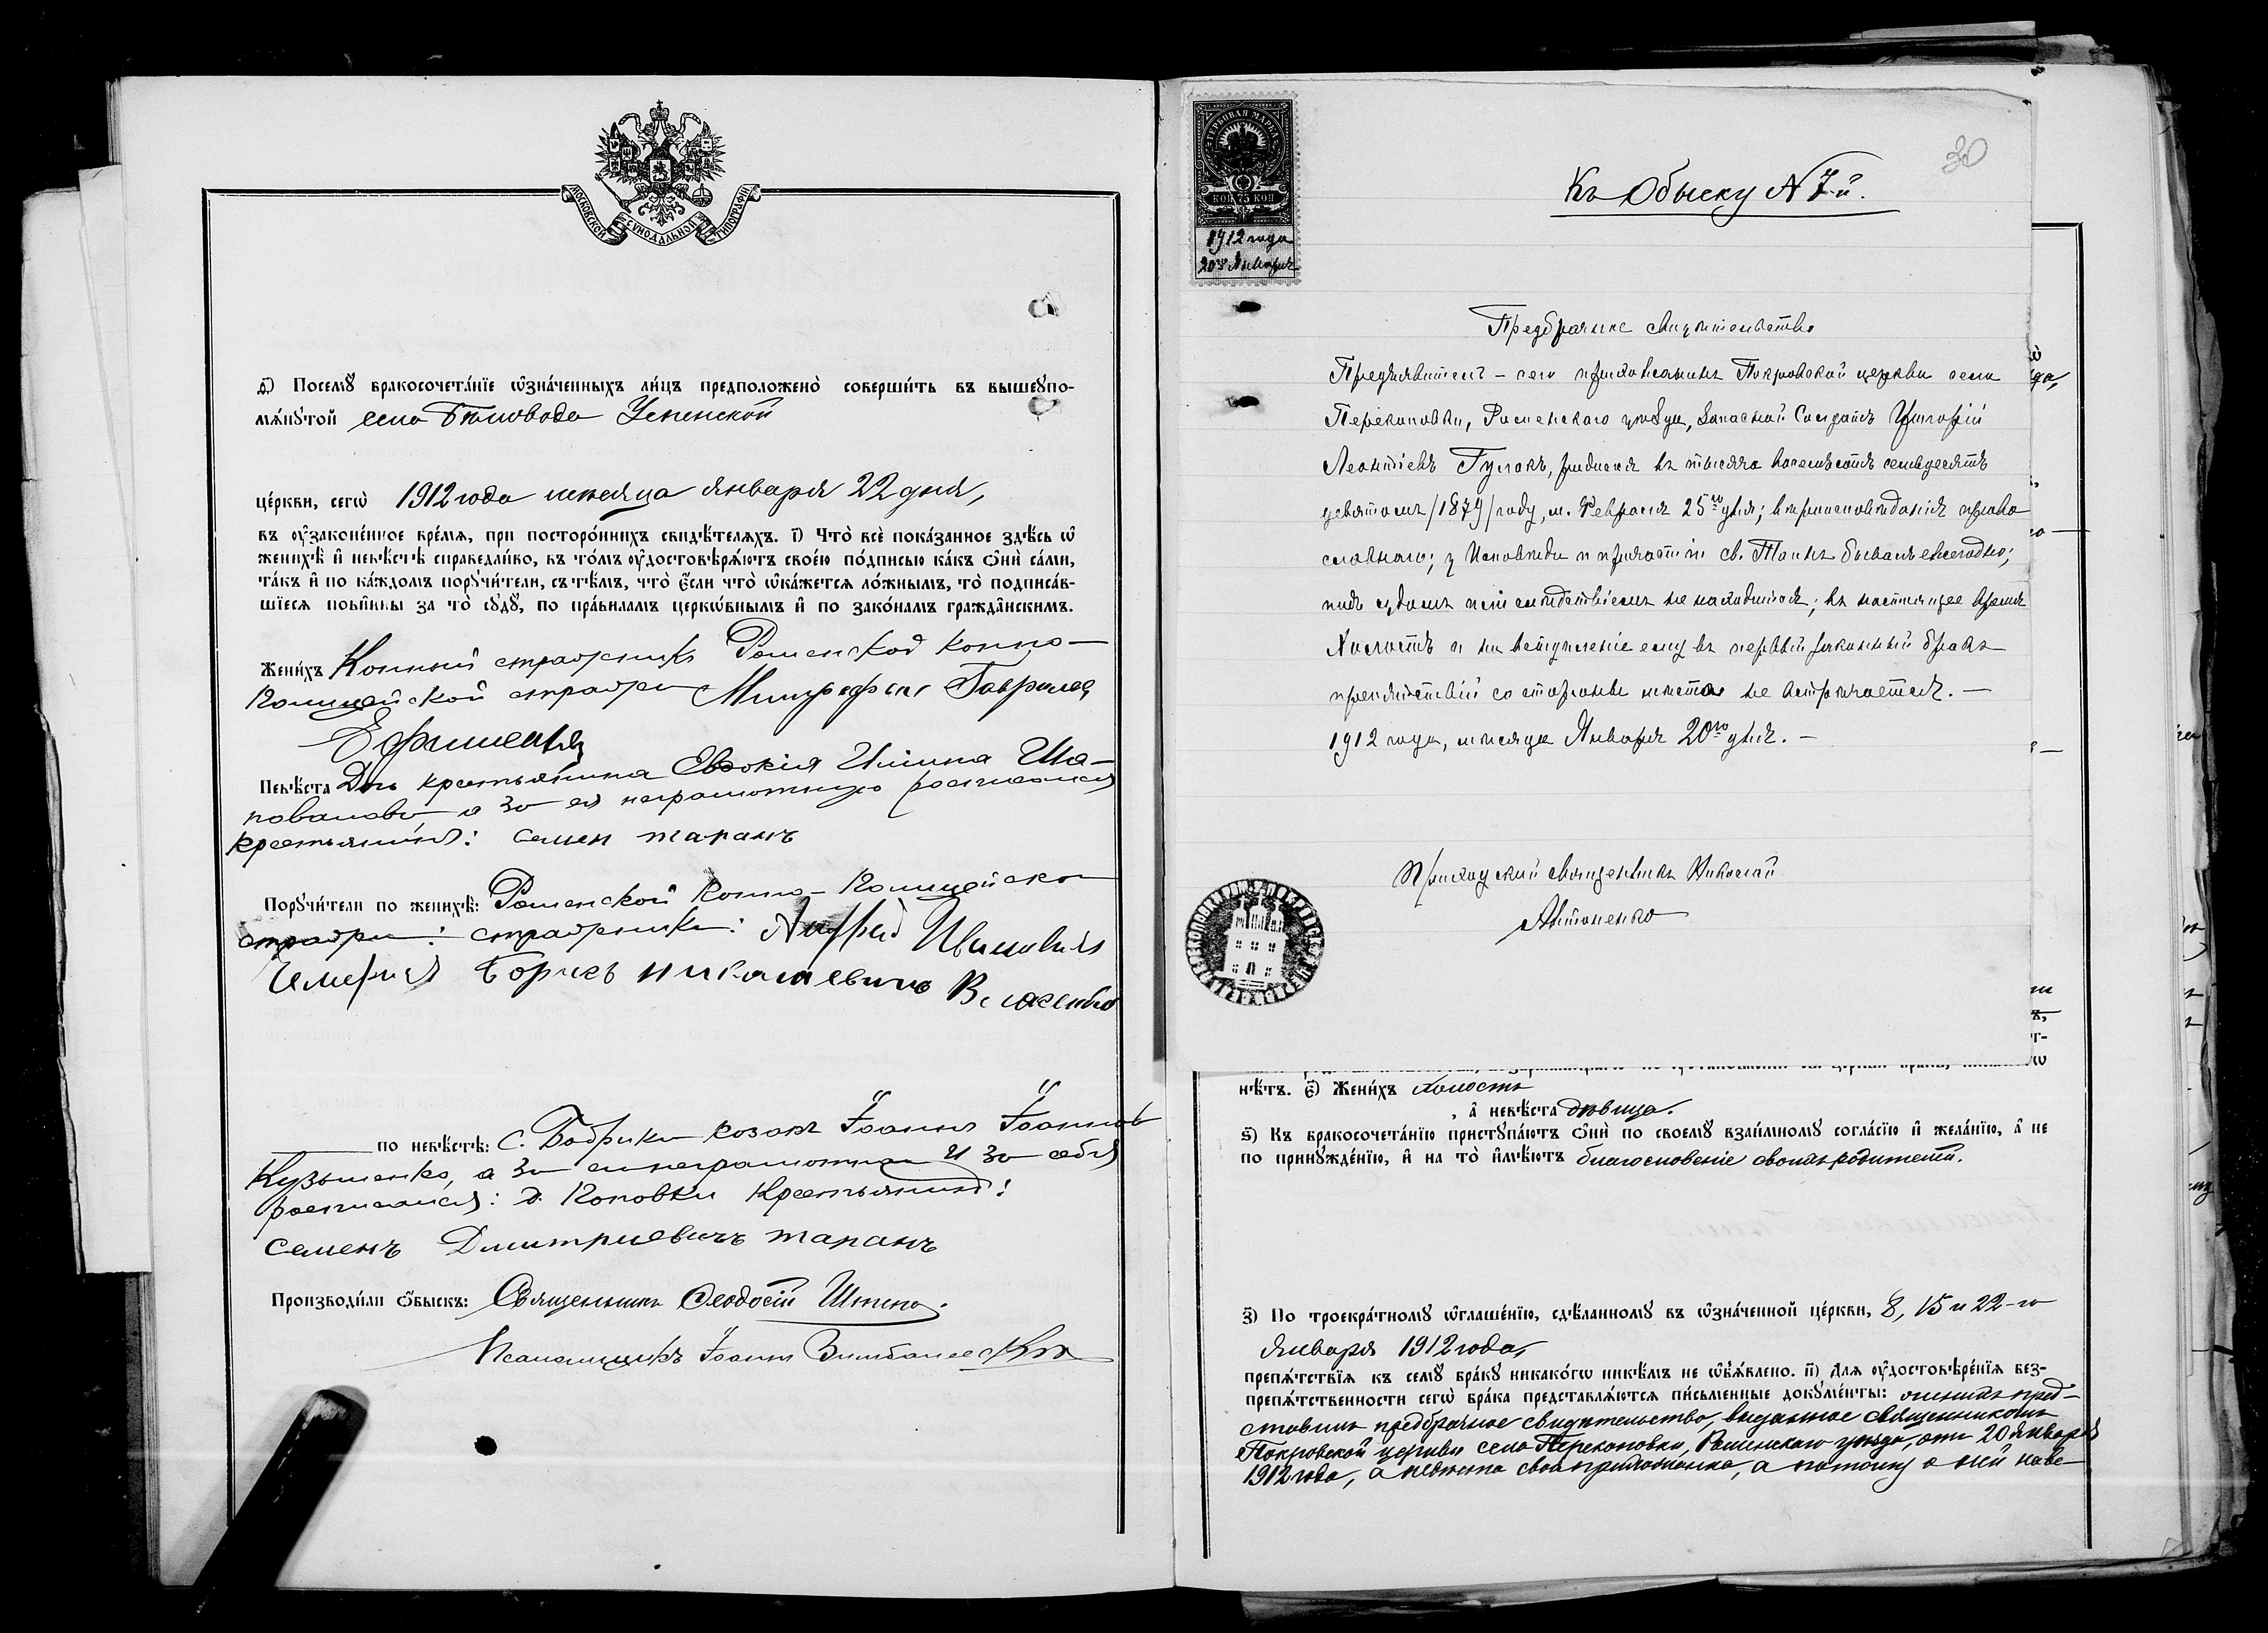 МОСКОВСКОЙ СѴНОДАЛЬНОЙ ТИПОГРАФІИ
Посемꙋ бракосочета́нїе ѡ҆зна́ченныхъ ли́цъ предположено̀ соверши́ть въ вышеꙋпо-
мѧ́нꙋтой села Бѣловода Успенской
це́ркви, сегѡ̀ 1912 года месяца января 22 дня,
въ ᲂу҆зако́ненное вре́мѧ, при посторо́ннихъ свидѣ́телѧхъ. і҃) Что̀ всѐ пока́занное здѣ́сь ѡ҆
женихѣ̀ и҆ невѣ́стѣ справедли́во, въ то́мъ ᲂу҆достовѣрѧ́ютъ свое́ю по́дписью ка́къ ѻ҆нѝ са́ми,
та́къ и҆ по ка́ждомъ порꙋчи́тели, съ тѣ́мъ, что̀ є҆́сли что̀ ѡ҆ка́жетсѧ ло́жнымъ, то̀ подписа́в-
шїесѧ пови́нны за то̀ сꙋдꙋ̀, по пра́виламъ церкѡ́внымъ и҆ по зако́намъ гражда́нскимъ.
Жени́хъ Конный стражникъ Роменской конно-
полицейской стражи Митрофан Гаврилов
Ефименко
Невѣ́ста Дочь крестьянина Евдокія Ильина Ша-
повалова, а за ея неграмотную росписался
крестьянинъ: семен таранъ
Порꙋчи́тели по женихѣ̀: Роменской конно-полицейской
стражи: стражники: Андрей Иванович
Борисъ николаевичъ Власенко
по невѣ́стѣ: с. Бобрики козакъ Іоаннъ Іоаннов
Кузьменко, а за его неграмотнаго и за себя
росписался: д. Коповки крестьянинъ:
семенъ Дмитриевичъ таранъ
Производи́ли ѻ҆́быскъ: Священникъ Ѳеодосій
Псаломщикъ Іоаннъ
30
Къ Обыску № 7-й.
ГЕРБОВАЯ МАРКА
КОП 75 КОП
1912 года
20го Января
Предбрачное свидѣтельство
Предъявитель - сего прихожанинъ Покровской церкви села
Перекоповки, Роменскаго уѣзда, запасной Солдатъ Григорій
Леонтіевъ Гулакъ, родился въ тысяча восемьсотъ семьдесятъ
девятомъ /1879/ году, м. Февраля 25го дня; вѣроисповѣданія право-
славнаго; у Исповѣди и причастія св. Таинъ бывалъ ежегодно;
подъ судомъ или слѣдствіемъ не находится; въ настоящее время
Холостъ и на вступленіе ему въ первый законный бракъ
препятствій со стороны причта не встрѣчается. —
1912 года, мѣсяца Января 20го дня. —
Приходскій священникъ Николай
Антоненко
нѣ́тъ. є҃) Жени́хъ холостъ
, а҆ невѣ́ста дѣвица.
ѕ҃) Къ бракосочета́нїю пристꙋпа́ютъ ѻ҆нѝ по своемꙋ̀ взаи́мномꙋ согла́сїю и҆ жела́нїю, а҆ не
по принꙋжде́нїю, и҆ на то̀ и҆мѣ́ютъ благословеніе своихъ родителей.
з҃) По троекра́тномꙋ ѡ҆глаше́нїю, сдѣ́ланномꙋ въ ѡ҆зна́ченной це́ркви, 8, 15 и 22-го
января 1912 года,
препѧ́тствїѧ къ семꙋ̀ бра́кꙋ никако́гѡ никѣ́мъ не ѡ҆б̾ѧ́влено. и҃) Для ᲂу҆достовѣре́нїѧ без-
препѧ́тственности сегѡ̀ бра́ка представлѧ́ютсѧ пи́сьменные докꙋме́нты: женихъ пред-
ставилъ предбрачное свидѣтельство, выданное священникомъ
Покровской церкви села Перекоповки, Роменскаго уѣзда, отъ 20 января
1912 года, а невѣста своя прихожанка, а потому о ней наве-